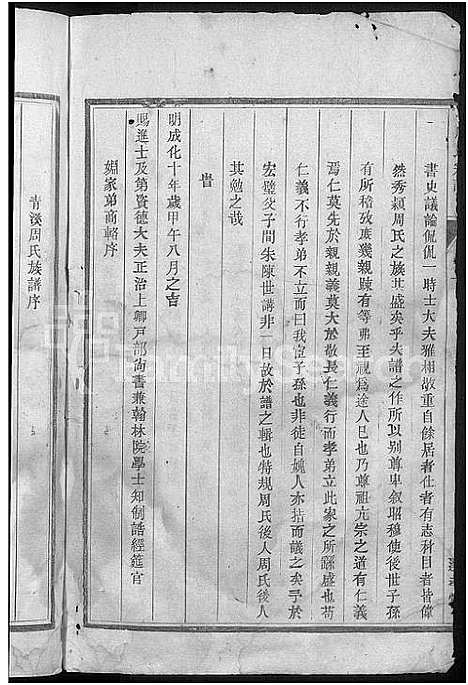 書史議論侃侃一時士大夫雅相敬重自餘居者仕者有志科目者皆偉
然秀穎周氏之族其盛矣乎夫譜之作所以别尊卑叙昭穆使後世子孫
有所稽攷庶幾親踈有等弗至視爲途人巳也乃尊祖亢宗之道有仁義
焉仁莫先於親親義莫大於敬長仁義行而孝弟立此家之所繇盛也苟
仁義不行孝弟不立而曰我宦子孫也非徒自媿人亦掿而議之矣予於
宏璧父子間朱陳世講非一日故於譜之輯也特規周氏後人周氏後人
其勉之哉
旹
明成化十年歲甲午八月之吉
賜進士及第資德大夫正治上卿戸部尙書兼翰林院學士知制誥經筵官
姻家弟商輅序
青溪周氏族譜序